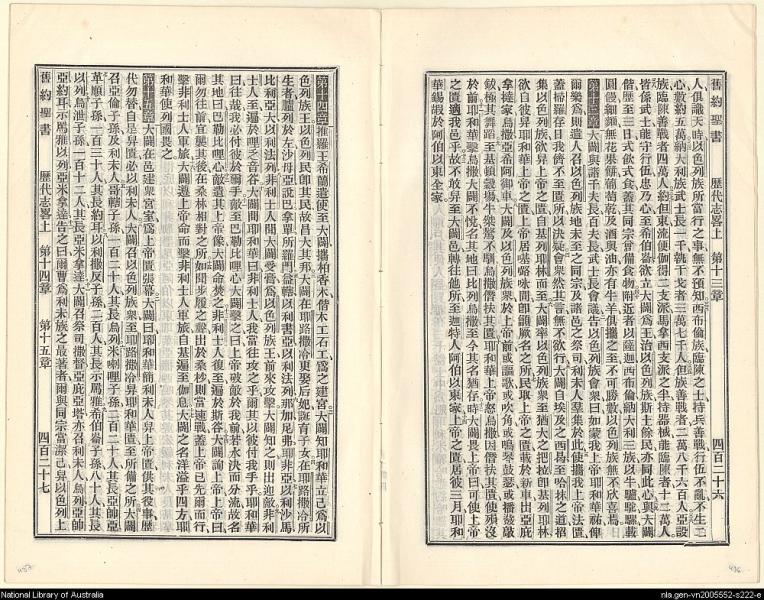 舊約聖書 歷代志畧上 第十三章 四百二十六
人俱識天時以色列族所當行之事無不預知西布倫族臨陳之士持兵善戰行伍不亂不生二
心數約五萬納大利族武士長一千執干戈者三萬七千人但族善戰者二萬八千六百人亞設
族臨陳善戰者四萬人約但東流便伽得二支派馬拿西支派之半持器械能臨陳者十二萬人
皆係武士能守行伍忠乃心至希伯崙欲立大闢爲王治以色列族斯土餘民亦同此心與大闢
偕歷至三日式飲式食蓋其同宗曾備食物附近者以薩迦西布倫納大利三族以牛驢駝騾載
圓饅細麵無花果餅葡萄乾及酒與油亦有牛羊俱攜之至不可勝數以色列族無不欣喜焉
第十三章 大闢與諸千夫長百夫長武士長會議告以色列族會衆曰如蒙我上帝耶和華祐俾
爾樂爲則遣人召以色列族地未至之同宗及諸邑之祭司利未人羣集於此使攜我上帝法匱
蓋掃羅存日我儕不至匱所以決疑會衆然其言無不欲行大闢自埃及之西曷至哈抹之道招
集以色列族欲昇上帝之匱自基列耶林而至大闢率以色列族衆至猶大之把拉即基列耶林
欲自彼昇耶和華上帝之匱上帝居基𡀔咱間即籲厥名之所民取上帝之匱載於新車出亞庇
拿撻家烏撒亞希阿御車大闢及以色列族衆於上帝前或謳歌或吹角或鳴琴鼓瑟或播鼗敲
鈸極其舞蹈至基頓穀塲牛失驚不馴烏撒僭扶其匱耶和華上帝怒烏撒因僭扶其匱使殞沒
於前耶和華降災烏撒大闢不悅名其地曰比列烏撒至今其名猶存時大闢畏上帝曰可使上帝
之匱適我邑乎故不敢昇至大闢邑轉往他所至迦特人阿伯以東家上帝之匱居彼三月耶和
華錫嘏於阿伯以東全家
第十四章 推羅王希蘭遣使至大闢攜柏香木偕木工石工爲之建宮大闢知耶和華立己爲以
色列族王以色列民卽其民故昌大其邦大闢在耶路撒冷更娶后妃誕育子女在耶路撒冷所
生者臚列於左沙母亞說巴拿單所羅門益轄以利書亞以利法列那加尼弗耶非亞以利沙馬
比利亞大以利法列非利士人聞大闢受膏爲以色列族王前來攻擊大闢知之則出迎敵非利
士人至遍於哩乏音谷大闢問耶和華曰非利士人我當往攻之乎爾其以彼付我手乎耶和華
曰往哉我必付彼於爾手敵至巴勒比哩心大闢擊之曰上帝破敵於我前若水決而分流故名
其地曰巴勒比哩心敵遺其上帝像大闢命焚之非利士人復至遍於斯谷大闢詢上帝上帝曰
爾勿往前宜襲其後在桑林相對之所如聞步履之聲出於桑杪則當速戰蓋上帝已先爾而行
擊非利士人軍旅大闢遵上帝命而擊非利士人軍旅自基遍至伽息大闢之名洋溢乎四方耶
和華使列國畏之
第十五章 大闢在邑建衆宮室爲上帝匱張幕大闢曰耶和華簡利未人昇上帝匱供其役事歷
代勿替自是昇匱必以利未人大闢召以色列族衆至耶路撒冷昇耶和華匱至所備之所大闢
召亞倫子孫及利未人哥轄子孫一百二十人其長烏列米喇哩子孫二百二十人其長亞帥亞
革順子孫一百三十人其長約耳以利撒反子孫二百人其長示馬雅希伯崙子孫八十人其長
以列烏泄子孫一百十二人其長亞米拿撻大闢召祭司撒督亞庇亞塔亦召利未人烏列亞帥
亞約耳示馬雅以列亞米拿撻告之曰爾曹爲利未族之最著者爾與同宗當潔己昇以色列上
舊約聖書 歷代志畧上 第十四章 第十五章 四百二十七
National Library of Australia
nla.gen-vn2005552-s222-e